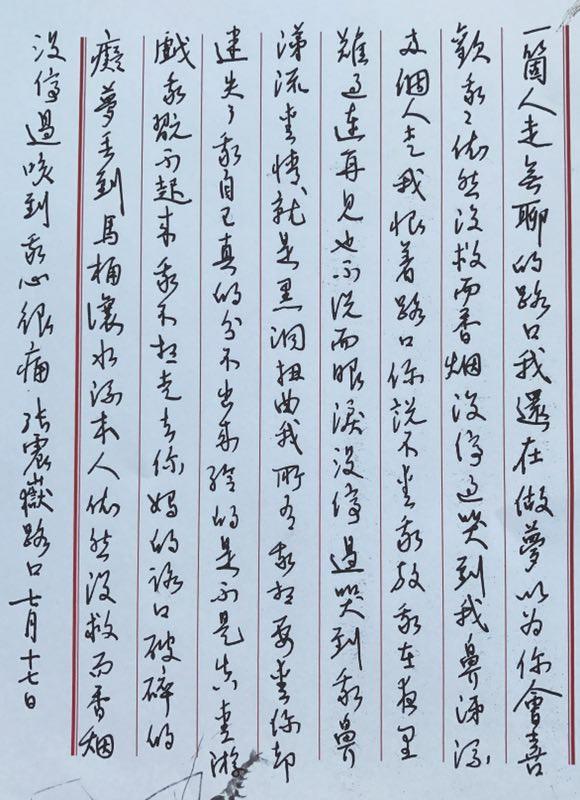 一箇人走無聊的路口我還在做夢以为你會喜
歡我〻依然没救而香烟没停过哭到我鼻涕流
个個人走我恨着路口你説不爱我放我在夜里
难过连再见也不说而眼淚没停過哭到我鼻
涕流爱情就是黑洞扭曲我所有我想要爱你却
迷失了我自己真的分不出来给的是不是真爱游
戲我翫不起来我不想走去你妈的路口破碎的
癡夢丢到馬桶讓水流本人依然没救而香烟
没停過咳到我心很痛 张震嶽路口七月十七日